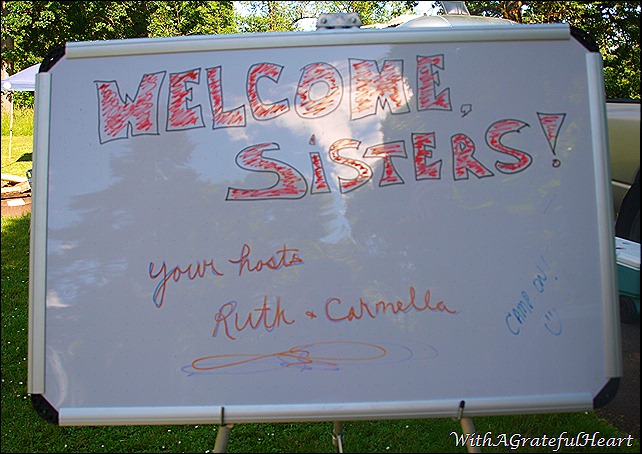 WELCOME,
SISTERS!
Your hosts
Ruth + Carmella
CAMP ON!
WithAGratefulHeart